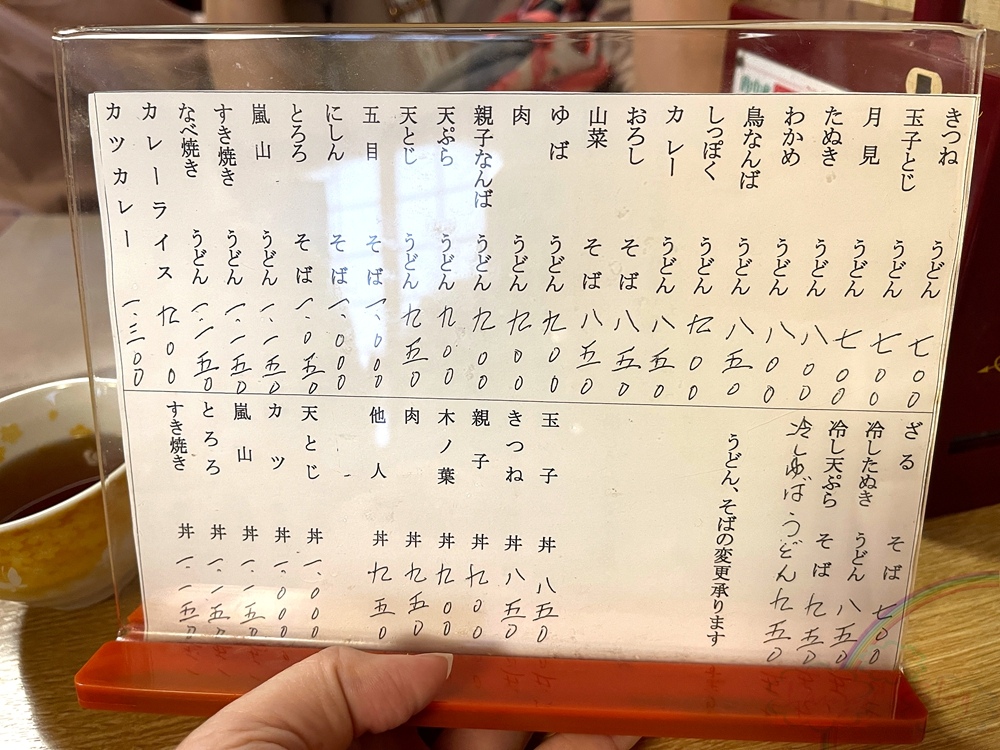 きつね うどん 七00
玉子とじ うどん 七00
月見 うどん 七00
たぬき うどん 八00
わかめ うどん 八00
鳥なんば うどん 八五0
しっぽく うどん 九00
カレー うどん 八五0
おろし そば 八五0
山菜 そば 八五0
ゆば うどん 九00
肉 うどん 九00
親子なんば うどん 九00
天ぷら うどん 九00
天とじ うどん 九五0
五目 そば 一、000
にしん そば 一、000
とろろ そば 一、0五0
嵐山 うどん 一、一五0
すき焼き うどん 一、一五0
なべ焼き うどん 一、一五0
カレーライス 九00
カツカレー 一、三00
ざる そば 七00
冷したぬき うどん 八五0
冷し天ぷら そば 九五0
冷しゆば うどん 九五0
うどん、そばの変更承ります
玉子 丼 八五0
きつね 丼 八五0
親子 丼 九00
木ノ葉 丼 九00
肉 丼 九五0
他人 丼 九五0
天とじ 丼 一、000
カツ 丼 一、000
嵐山 丼 一、一五0
とろろ 丼 一、一五0
すき焼き 丼 一、一五0